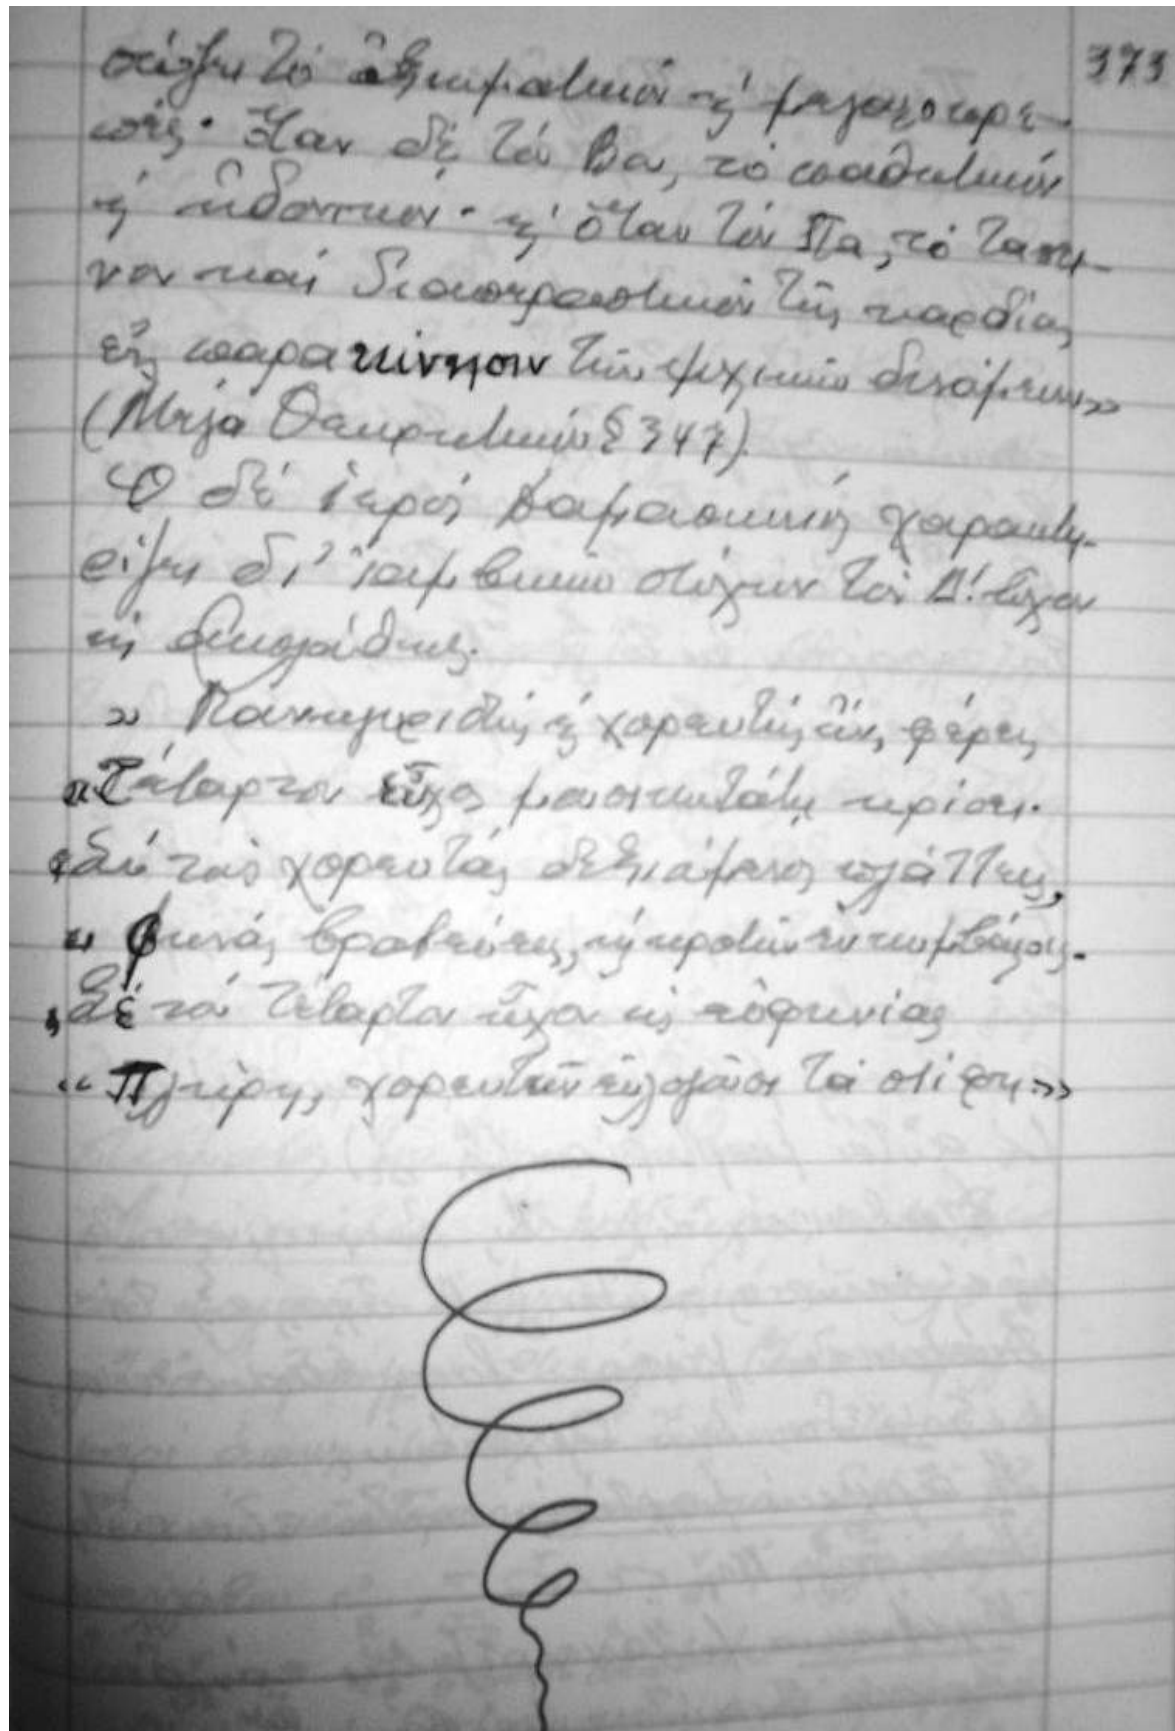 373
στάζει τὸ ἀξιωματικὸν κ' μεγαλοπρε-
πές· ὅταν δὲ τὸν Βου, τὸ παθητικὸν
κ' ἡδονικόν· κ' ὅταν τὸν Πα, τὸ ταπει-
νον καὶ διαπεραστικὸν τῆς καρδίας
εἰς παρακίνησιν τῶν ψυχικῶν δυνάμεων»
(Μέγα Θεωρητικὸν § 347).
Ὁ δὲ ἱερός Δαμασκηνός χαρακτη-
ρίζει δι' ἰαμβικῶν στίχων τὸν Δ! ἦχον
ὡς ἀκολούθως.
» Πανηγυριστής κ' χορευτής ὤν, φέρεις
«Τέταρτον εὖχος μουσικωτάτῃ κρίσει.
«Σὺ τοὺς χορευτάς δεξιούμενος πλάττεις,
« φωνάς βραβεύεις, κ' κροτῶν ἐν κυμβάλοις.
«Σέ τὸν τέταρτον ἦχον ὡς εὐφωνίας
« Πλήρη, χορευτῶν εὐλογοῦσι τά στίφη.»